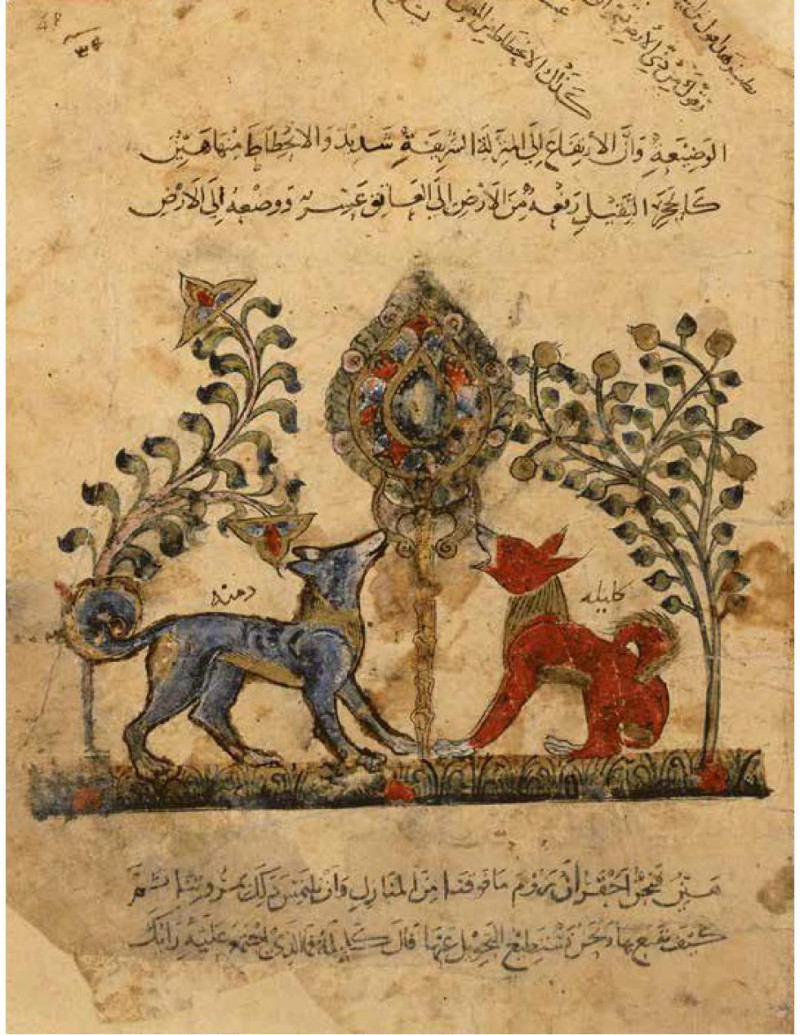 كذلك الانحطاط
الوضيعة وان الارتفاع الى المنزلة الشريفة شديد والانحطاط منها هين
كالحجر الثقيل رفعه من الارض الى العاتق عسر ووضعه الى الارض
كليله
دمنه
هين فنحن احق ان نروم ما فوقنا من المنازل وان نلتمس ذلك بمروتنا ثم
كيف نقنع بها ونحن نستطيع التحويل عنها قال كليله فما الذي اجتمع عليه رايك